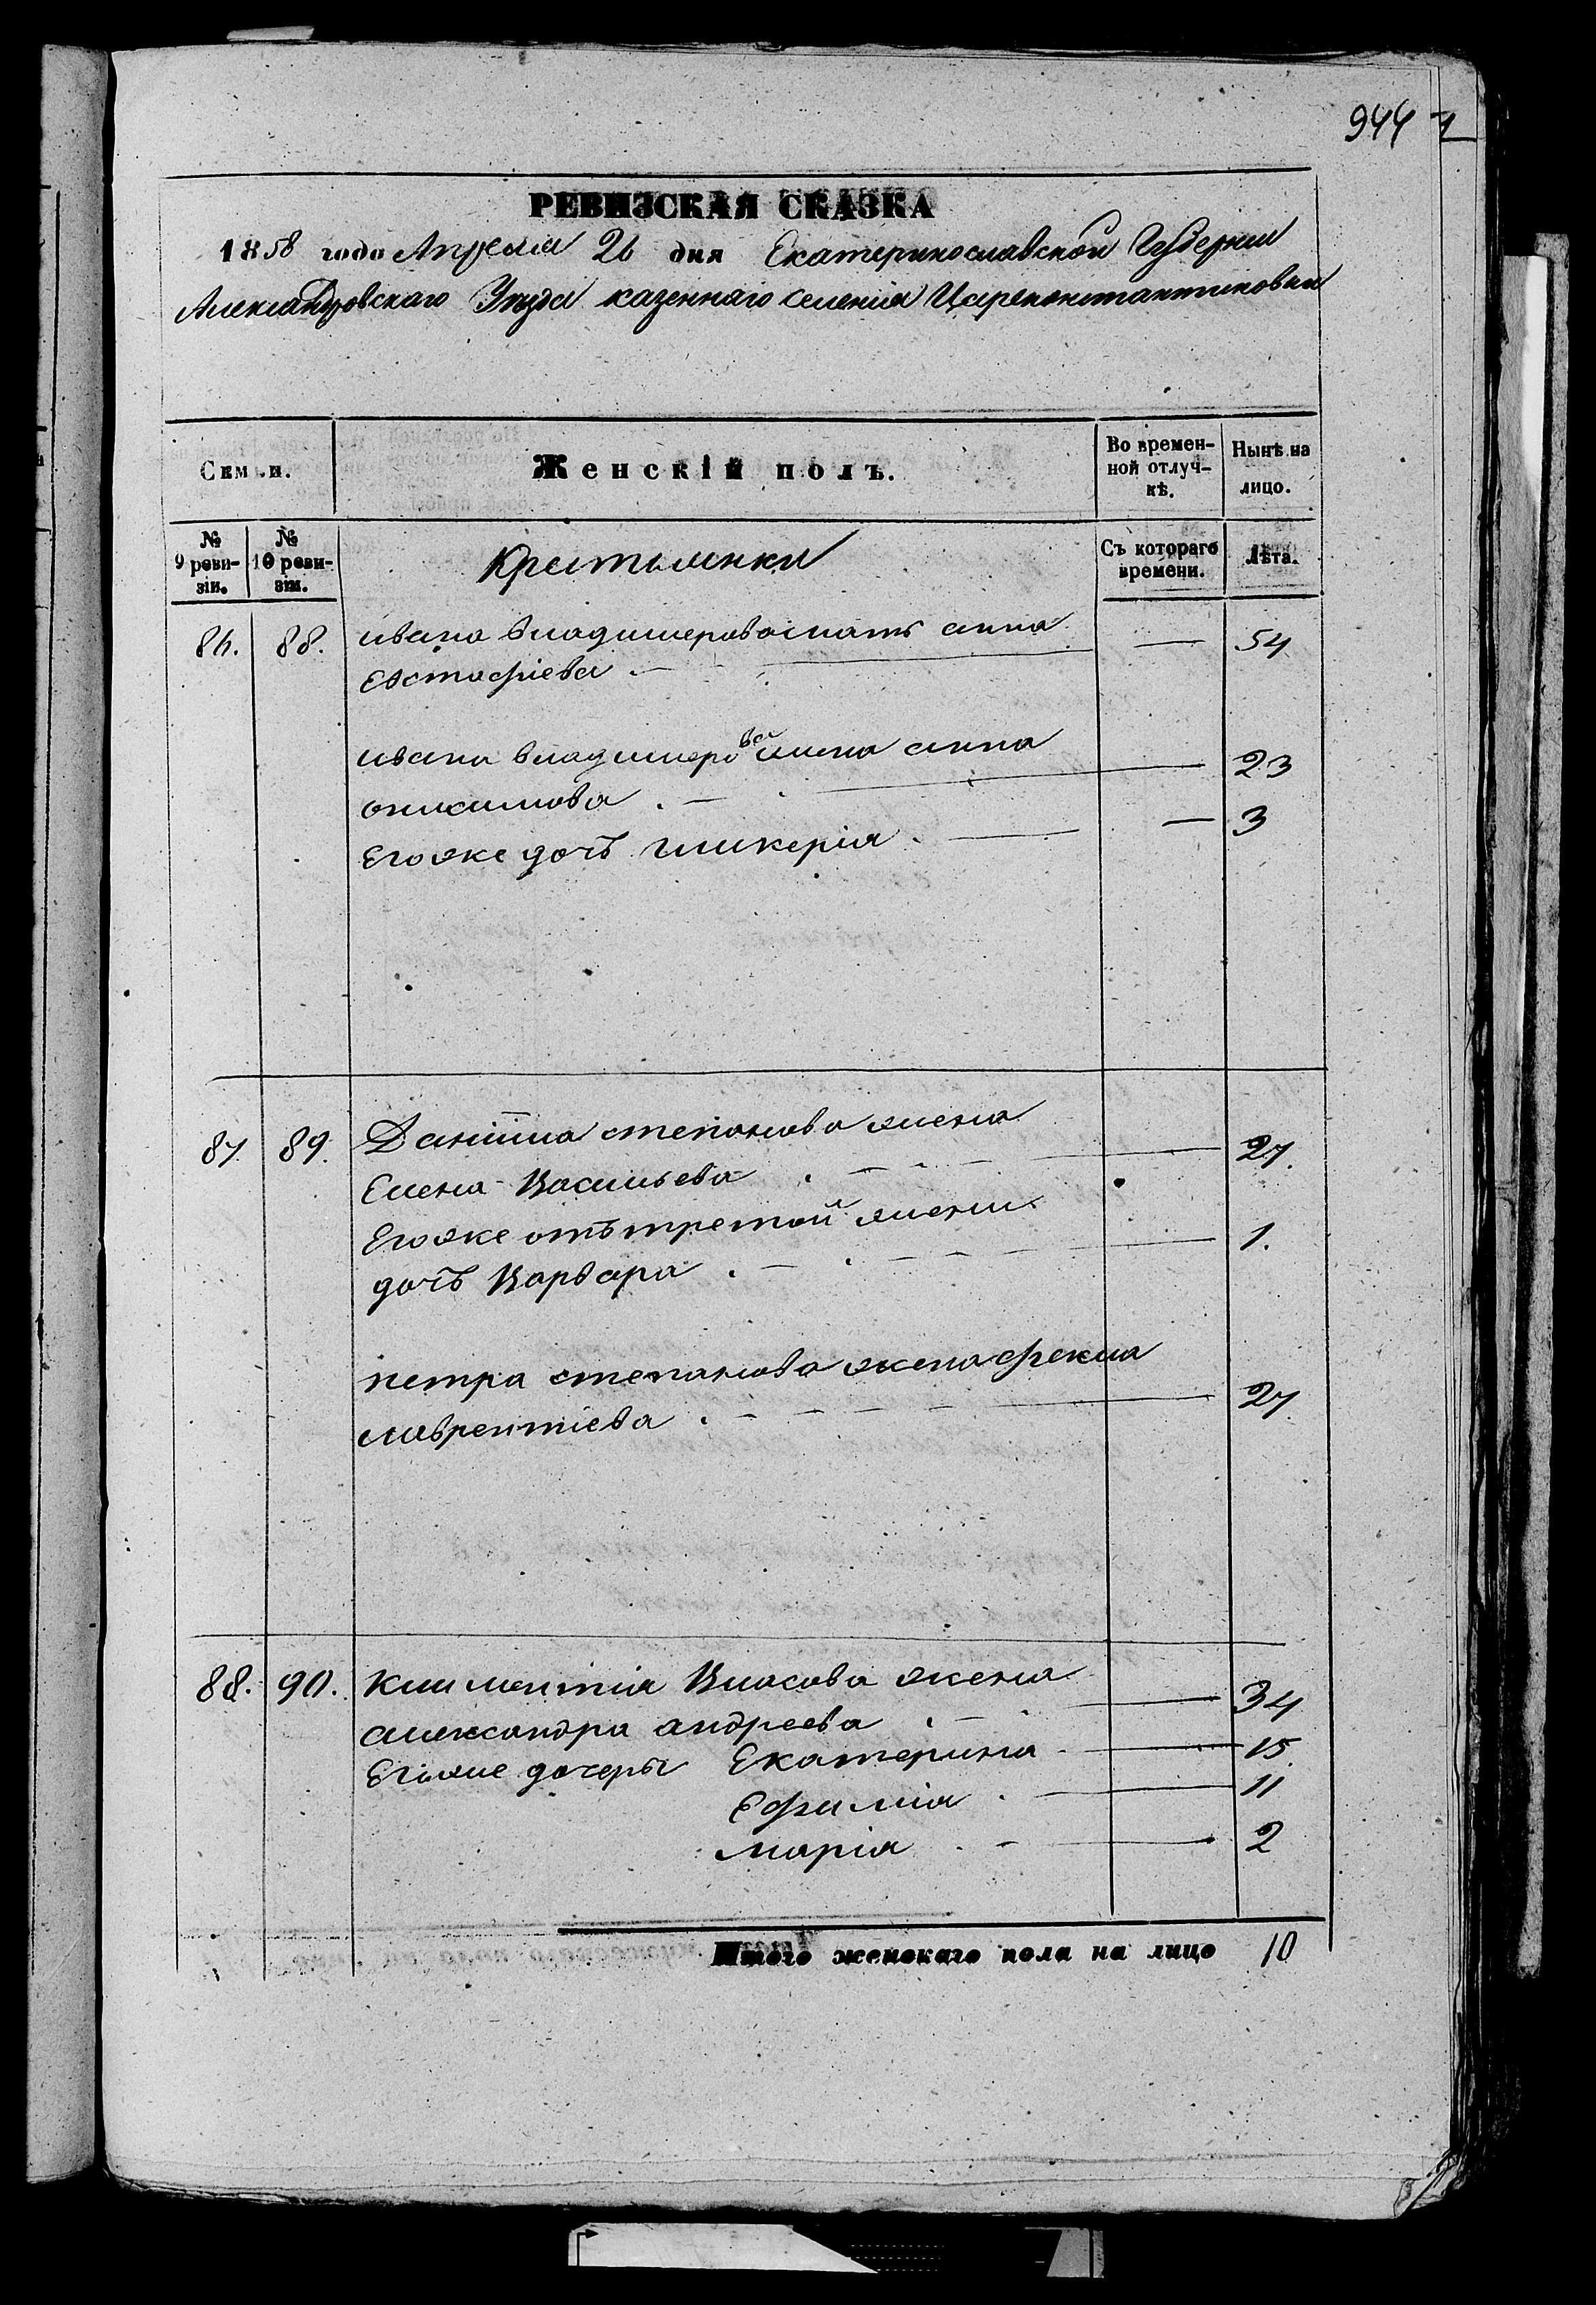 944
РЕВИЗСКАЯ СКАЗКА
1858 года Апреля 26 дня Екатеринославской Губернии
Александровскаго Уезда казеннаго селения Цареконстантиновки
Семьи. Женскій полъ. Во времен-ной отлуч-кѣ. Нынѣ на лицо.
№ 9 реви-зіи. № 10 реви-зіи. Крестьянки Съ котораго времени. Лѣта.
86. 88. ивана владимерова мать анна 54
Евстафіева
ивана владимерова жена анна 23
онисимова
Егоже дочь гликерія 3
87. 89. Даніила степанова жена
Елена Васильева 27.
Егоже отъ третой жены
дочь Варвара 1.
петра степанова жена фекла
лаврентіева 27
88. 90. климентія Власова жена
александра андреева 34
Егоже дочеры Екатерина 15
Ефимія 11
марія 2
Итого женскаго пола на лицо 10